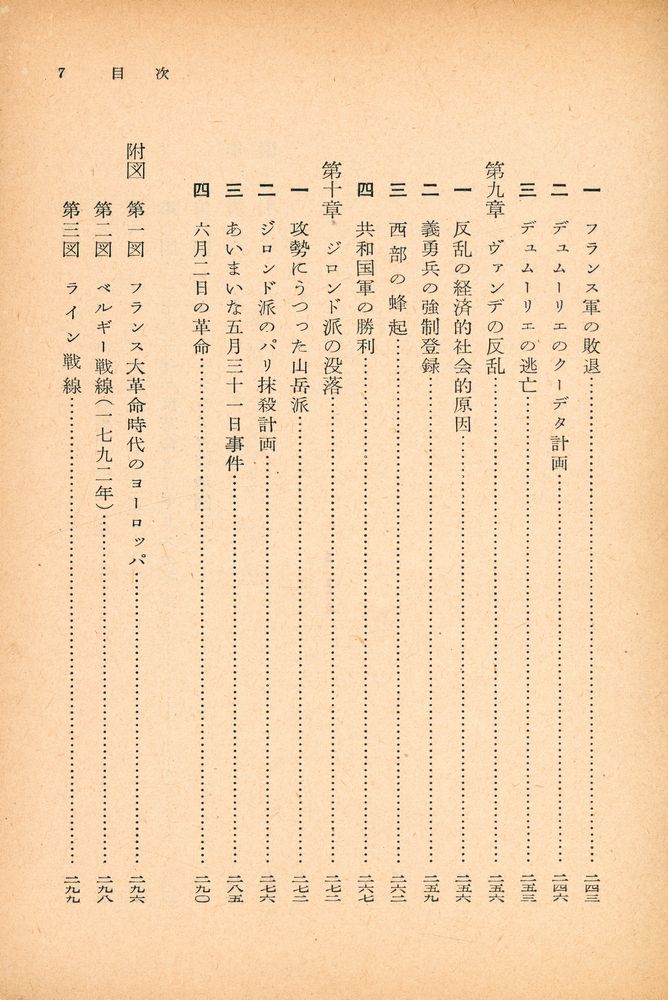 7 目次
一 フランス軍の敗退……………………二四三
二 デュムーリエのクーデタ計画……………………二四六
三 デュムーリエの逃亡……………………二五三
第九章 ヴァンデの反乱……………………二五六
一 反乱の経済的社会的原因……………………二五六
二 義勇兵の強制登録……………………二五九
三 西部の蜂起……………………二六二
四 共和国軍の勝利……………………二六七
第十章 ジロンド派の没落……………………二七二
一 攻勢にうつった山岳派……………………二七二
二 ジロンド派のパリ抹殺計画……………………二七六
三 あいまいな五月三十一日事件……………………二八五
四 六月二日の革命……………………二九〇
附図 第一図 フランス大革命時代のヨーロッパ……………………二九六
第二図 ベルギー戦線(一七九二年)……………………二九八
第三図 ライン戦線……………………二九九